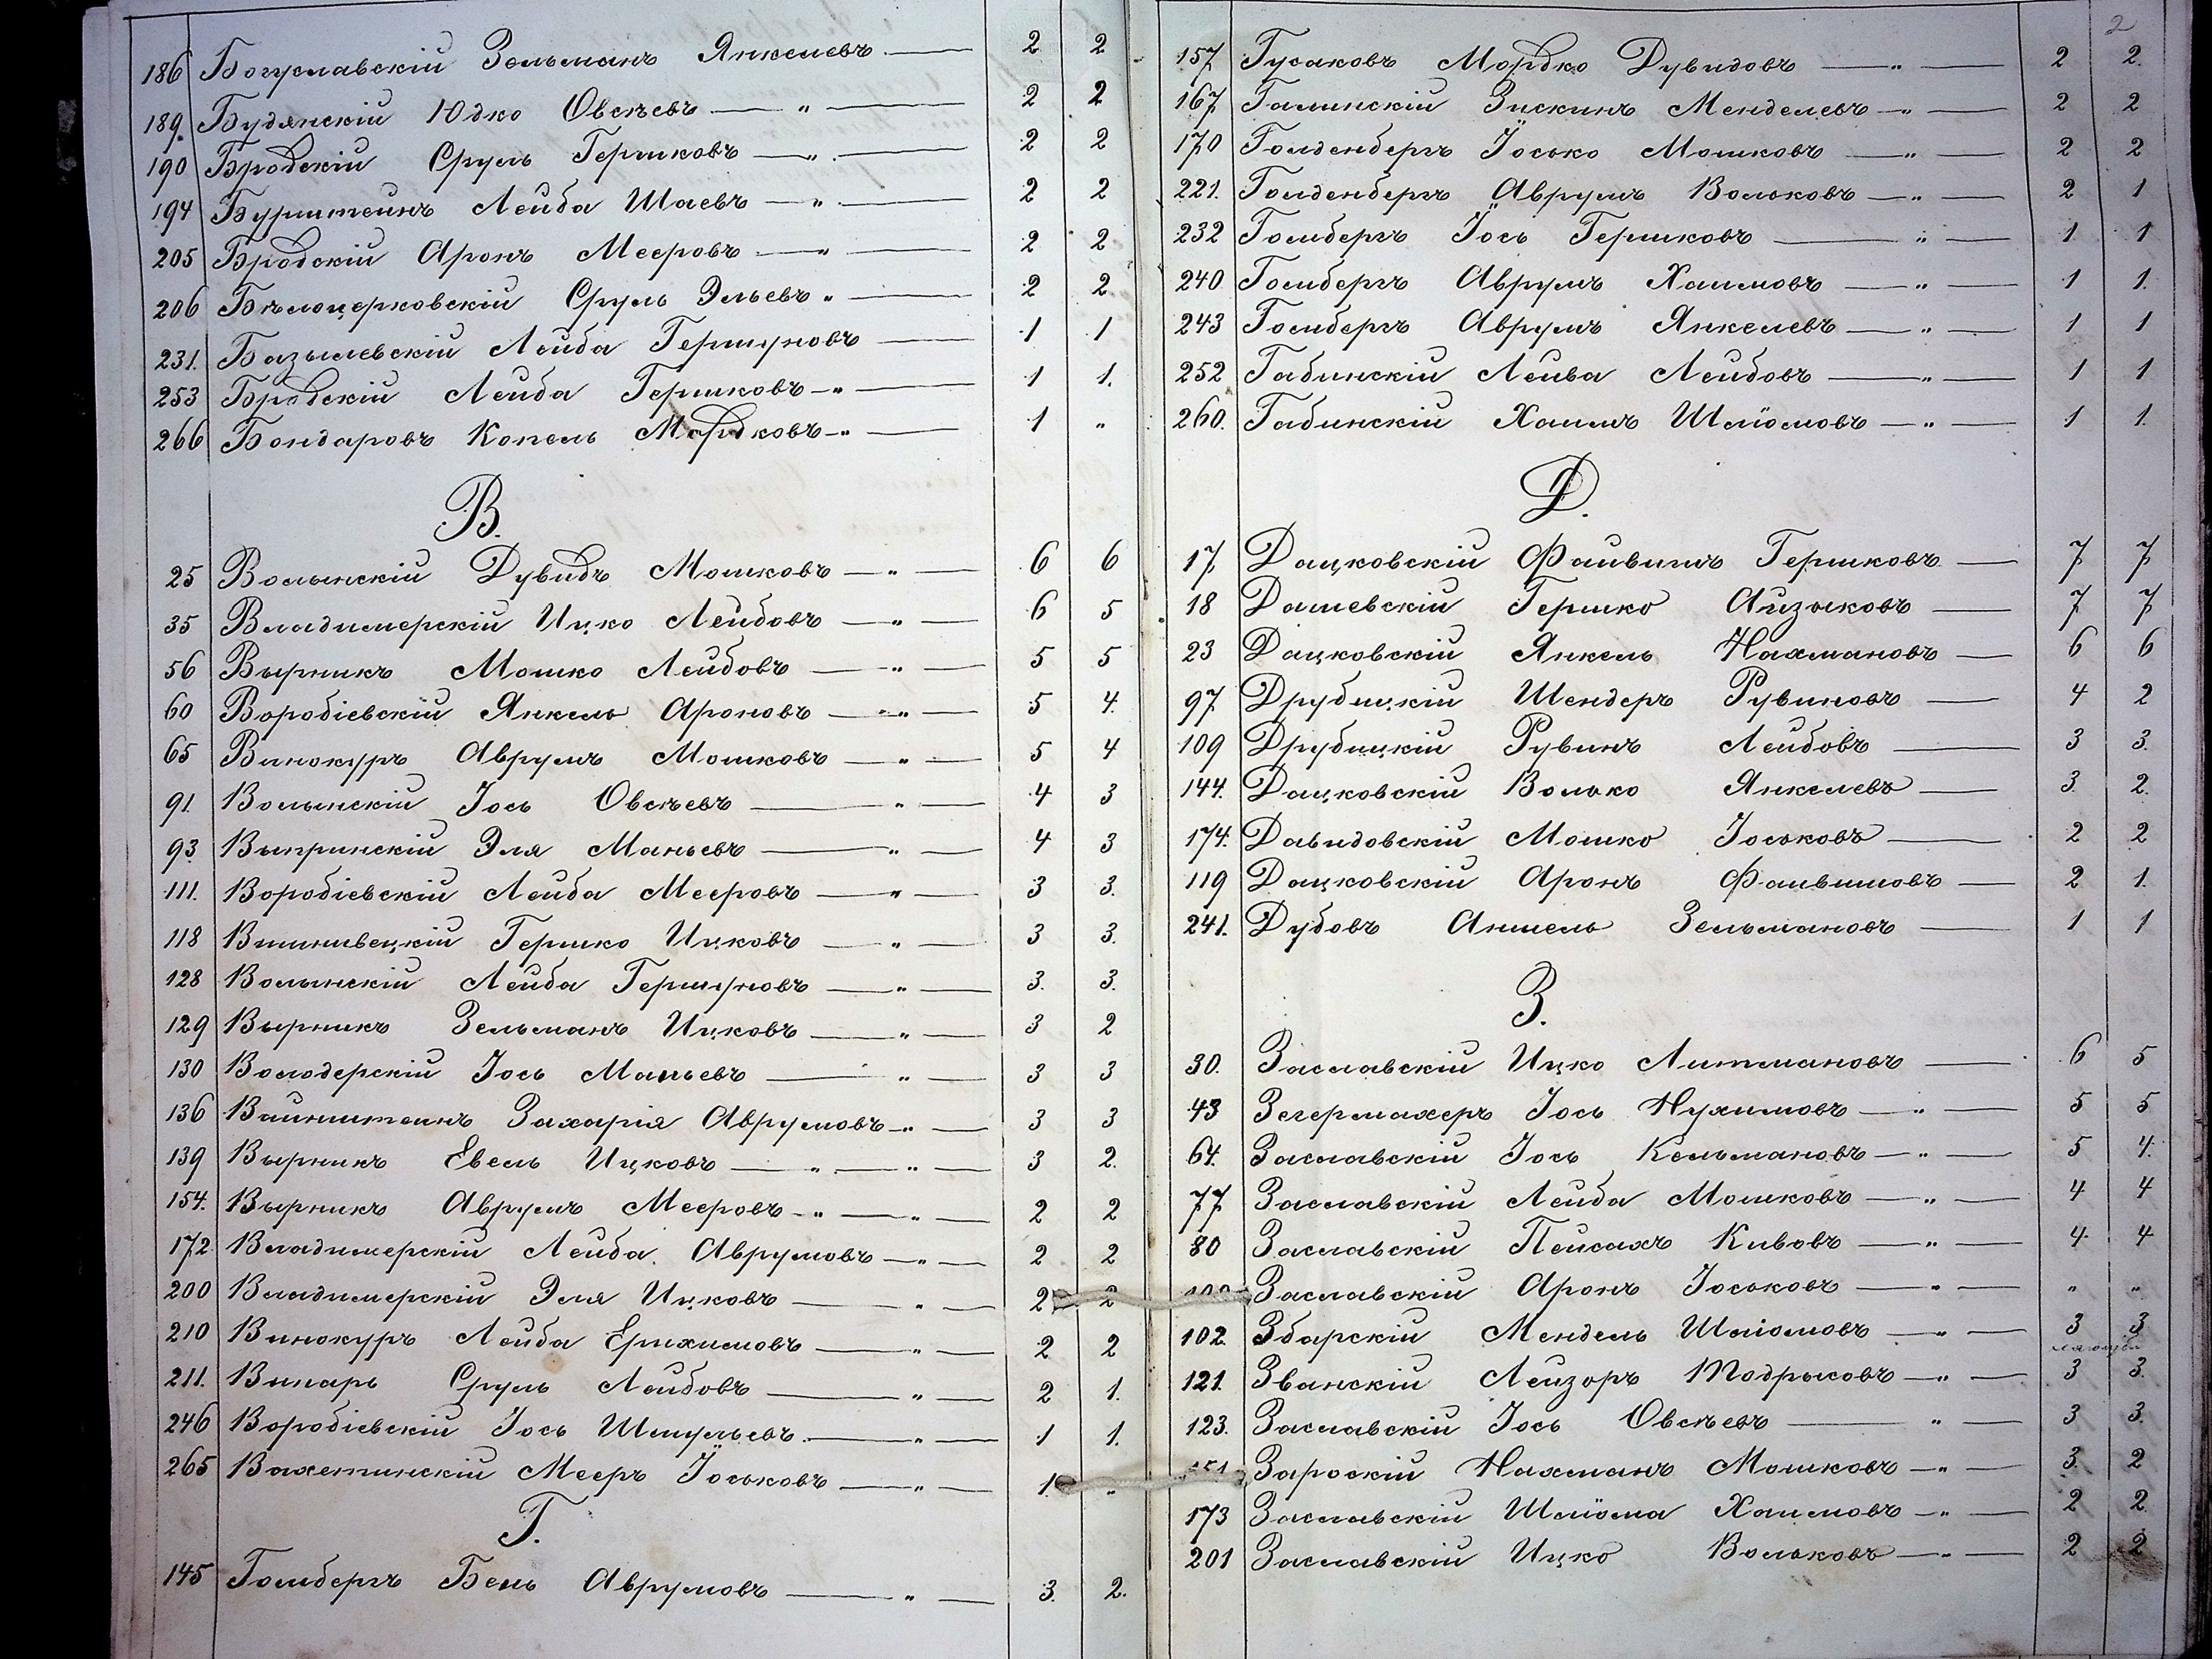 186 Богуславскій Зельманъ Янкелевъ — 2 2
189. Будянскій Юдко Овсѣевъ — " — 2 2
190 Бродскій Сруль Гершковъ — " — 2 2
194 Бурштейнъ Лейба Шаевъ — " — 2 2
205 Бродскій Аронъ Мееровъ — " — 2 2
206 Бѣлоцерковскій Сруль Эльевъ " — 2 2
231. Базылевскій Лейба Гершуновъ — 1 1
253 Бродскій Лейба Гершковъ — " — 1 1.
266 Бондаровъ Копель Мордковъ — " — 1 "
В.
25 Волынскій Дувидъ Мошковъ — " — 6 6
35 Владимерскій Ицко Лейбовъ — " — 6 5
56 Вырникъ Мошко Лейбовъ — " — 5 5
60 Воробіевскій Янкель Ароновъ — " — 5 4.
65 Винокуръ Аврумъ Мошковъ — " — 5 4
91. Волынскій Іось Овсѣевъ — " — 4 3
93. Выпринскій Эля Маньевъ — " — 4 3
111. Воробіевскій Лейба Мееровъ — " — 3 3.
118 Вишнивецкій Гершко Ицковъ — " — 3 3.
128 Волынскій Лейба Гершуновъ — " — 3. 3.
129 Вырникъ Зельманъ Ицковъ — " — 3 2
130 Володерскій Іось Маньевъ — " — 3 3
136 Вайнштейнъ Захарія Аврумовъ " — 3 3
139 Вырникъ Евель Ицковъ — " — " — 3 2.
154. Вырникъ Аврумъ Мееровъ — " — " — 2 2
172. Владимерскій Лейба Аврумовъ — " — 2 2
200 Владимерскій Эля Ицковъ — " — 2 2
210 Винокуръ Лейба Ерихимовъ — " — 2 2
211. Винарь Сруль Лейбовъ — " — 2 1.
246 Воробіевскій Іось Шмульевъ — " — 1 1.
265 Вахетинскій Мееръ Їоськовъ — " — 1. "
Г.
145 Гомбергъ Бень Аврумовъ — " — 3. 2.
2
157 Гусаковъ Мордко Дувидовъ — " — 2 2.
167 Галинскій Зискинъ Менделевъ — " — 2 2
170 Голденбергъ Їосько Мошковъ — " — 2 2
221. Голденбергъ Аврумъ Вольковъ — " — 2 1
232 Гомбергъ Їось Гершковъ — " — 1 1
240 Гомбергъ Аврумъ Хаимовъ — " — 1 1.
243 Гомбергъ Аврумъ Янкелевъ — " — 1 1
252 Габинскій Лейва Лейбовъ — " — 1 1
260. Габинскій Хаимъ Шлїомовъ — " — 1 1.
Д.
17 Дацковскій Файвишъ Гершковъ — 7 7
18 Дашевскій Гершко Айзыковъ — 7 7
23 Дацковскій Янкель Нахмановъ — 6 6
97 Друбицкій Шендеръ Рувиновъ — 4 2
109 Друбицкій Рувинъ Лейбовъ — 3 3.
144. Дацковскій Волько Янкелевъ — 3. 2.
174. Давидовскій Мошко Іоськовъ — 2 2
119 Дацковскій Аронъ Файвишовъ — 2 1.
241. Дубовъ Аншель Зельмановъ — 1 1
З.
30. Заславскій Ицко Литмановъ — 6 5
43 Зегермахеръ Іось Нухимовъ — " — 5 5
64. Заславскій Іось Кельмановъ — " — 5 4.
77 Заславскій Лейба Мошковъ — " — 4 4
80 Заславскій Пейсахъ Кивовъ — " — 4 4
Заславскій Аронъ Іоськовъ — " — " "
102. Збарскій Мендель Шлїомовъ — " — 3 3
121. Званскій Лейзоръ Тодрысовъ — " — 3 3.
123. Заславскій Іось Овсѣевъ — " — 3 3.
Зароскій Нахманъ Мошковъ — " — 3. 2
173 Заславскій Шлїома Хаимовъ — " — 2 2.
201 Заславскій Ицко Вольковъ — " — 2 2